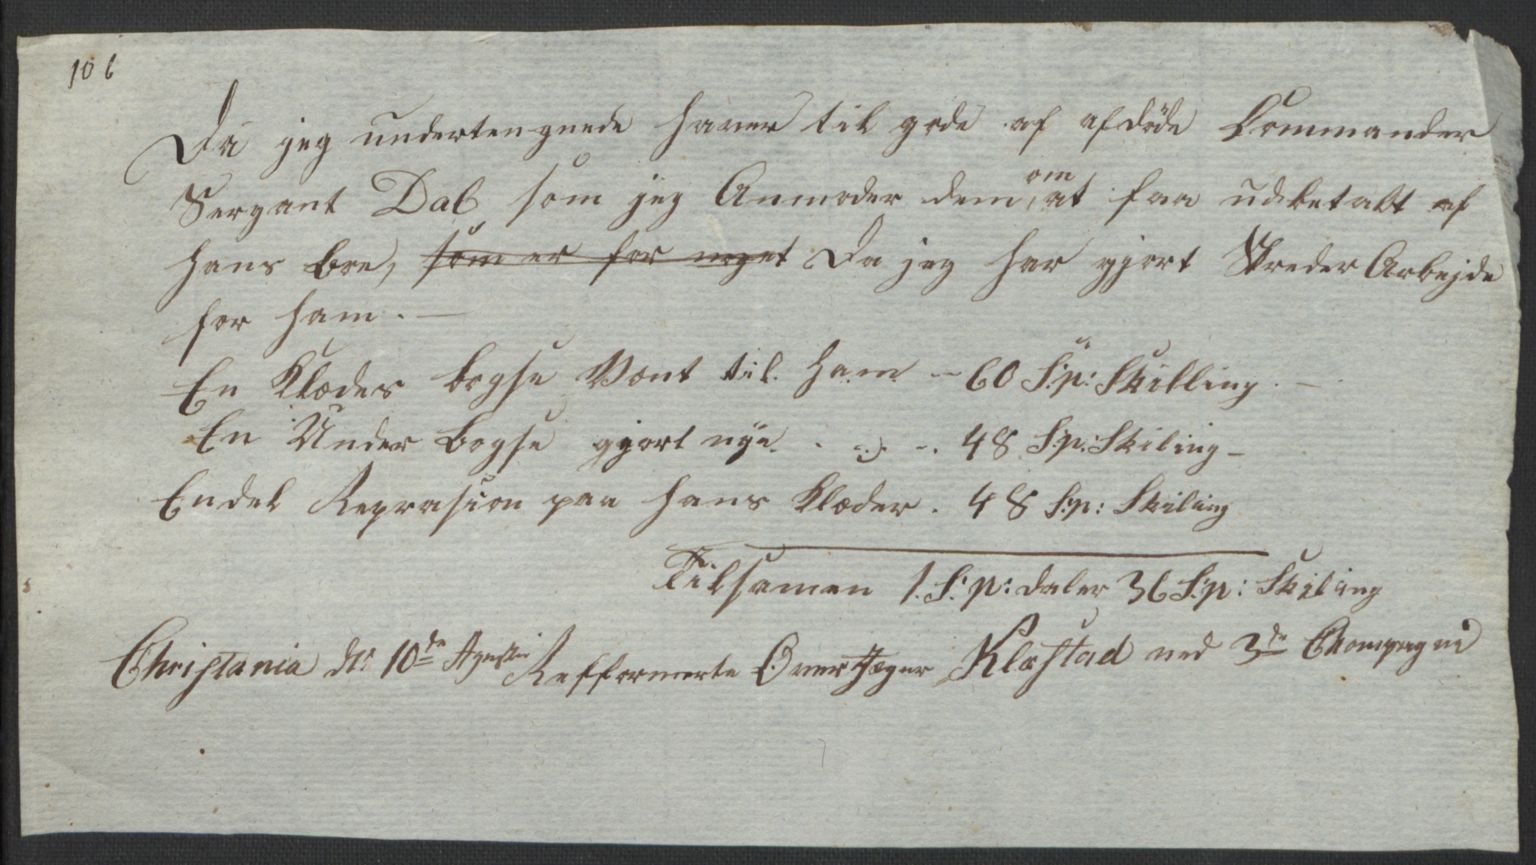 106
Da jeg undertengnede haver til gode af afdöde Commander
Sergant Dal som jeg Anmoder dem om at faa udbetalt af
hans boe, som er for noget Da jeg har gjort Skreder Arbejde
for ham. —
En Klædes bogse Vent til ham — 60 S:p: Skilling. —
En Under bogse gjort nye . . — . 48 S:p: Skiling —
En del Reprasion paa hans Klæder . 48 S:p: Skiling
Tilsamen 1. S:p: daler 36 S:p: Skiling
Christania d: 10de Agusti Refformerte Overjæger Klæstad ved 3de Chompagni